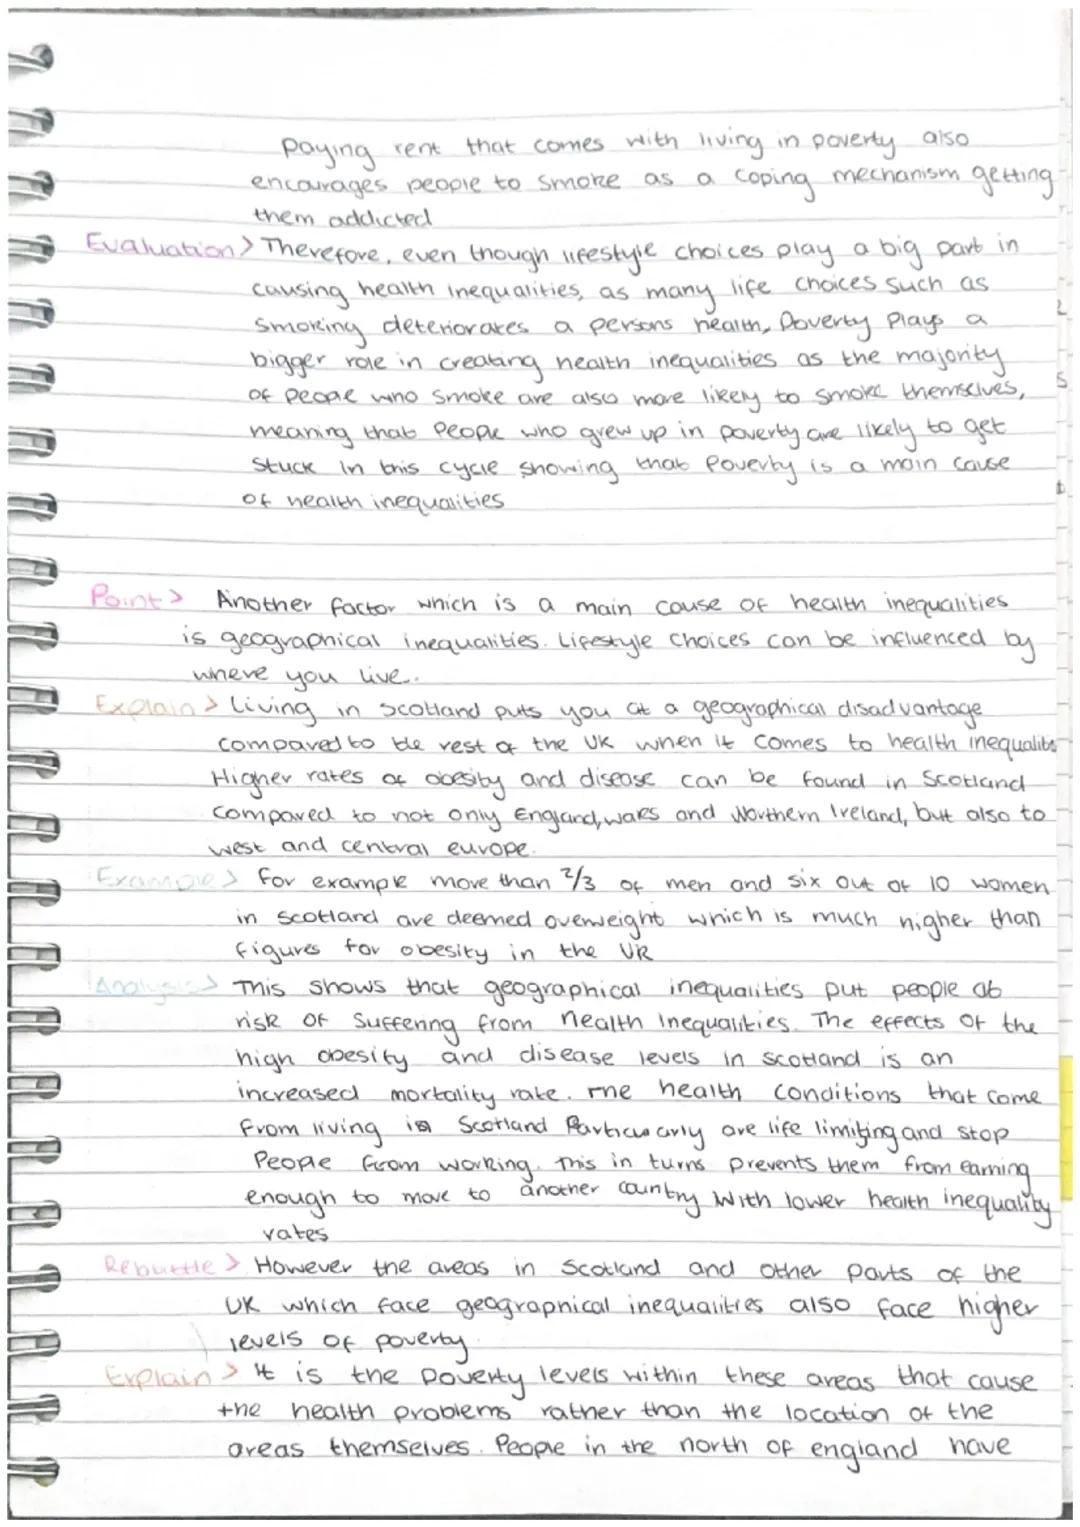 Paying rent that comes with living in poverty also
encourages people to smoke as a coping mechanism getting
them addicted
Evaluation > Therefore, even though lifestyle choices play a big part in
causing health inequalities, as many life choices such as
smoking deteriorates a persons health, Poverty Plays a
bigger role in creating health inequalities as the majority
of people who smoke are also more likely to smoke themselves,
meaning that People who grew up in poverty are likely to get
stuck in this cycle showing that Poverty is a main cause
of health inequalities
Point > Another factor which is a main cause of health inequalities
is geographical inequalities. Lifestyle Choices can be influenced by
where you live.
Explain > Living in scotland puts you at a geographical disadvantage
compared to the rest of the UK when it comes to health inequalits
Higher rates of obesity and disease can be found in Scotland
compared to not only England, wales and Northern Ireland, but also to
west and central europe.
Example > for example more than 2/3 of men and six out of 10 women
in scotland are deemed overweight which is much higher than
figures for obesity in the UK
Analysis > This shows that geographical inequalities put people at
risk of suffering from health Inequalities. The effects of the
high obesity and disease levels in scotland is an
increased mortality rate. The health conditions that come
from living in Scotland Particularly are life limiting and stop
People from working. This in turns prevents them from earning
enough to move to another country with lower health inequality
rates
Rebuttle > However the areas in Scotland and other parts of the
UK which face geographical inequalities also face higher
levels of poverty.
Explain > It is the poverty levels within these areas that cause
the health problems rather than the location of the
areas themselves. People in the north of england have